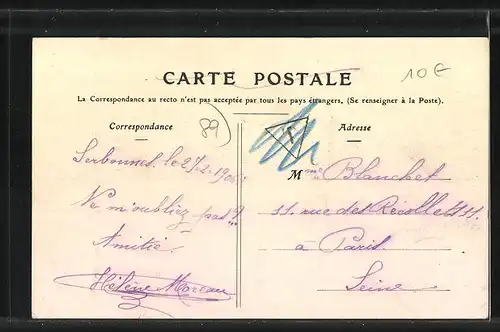 10€
CARTE POSTALE
La Correspondance au recto n'est pas acceptée par tous les pays étrangers, (Se renseigner à la Poste).
Correspondance
89
T
Adresse
Serbonnes, le
Ne m'oubliez pas
Amitié
Hélène Moreau
Mme Blanchet
11. rue des Récollets 11.
a Paris
Seine